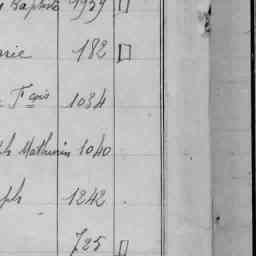 Baptiste 1939
rie 182
Fçois 1034
ph Mathurin 1040
ph 1242
725